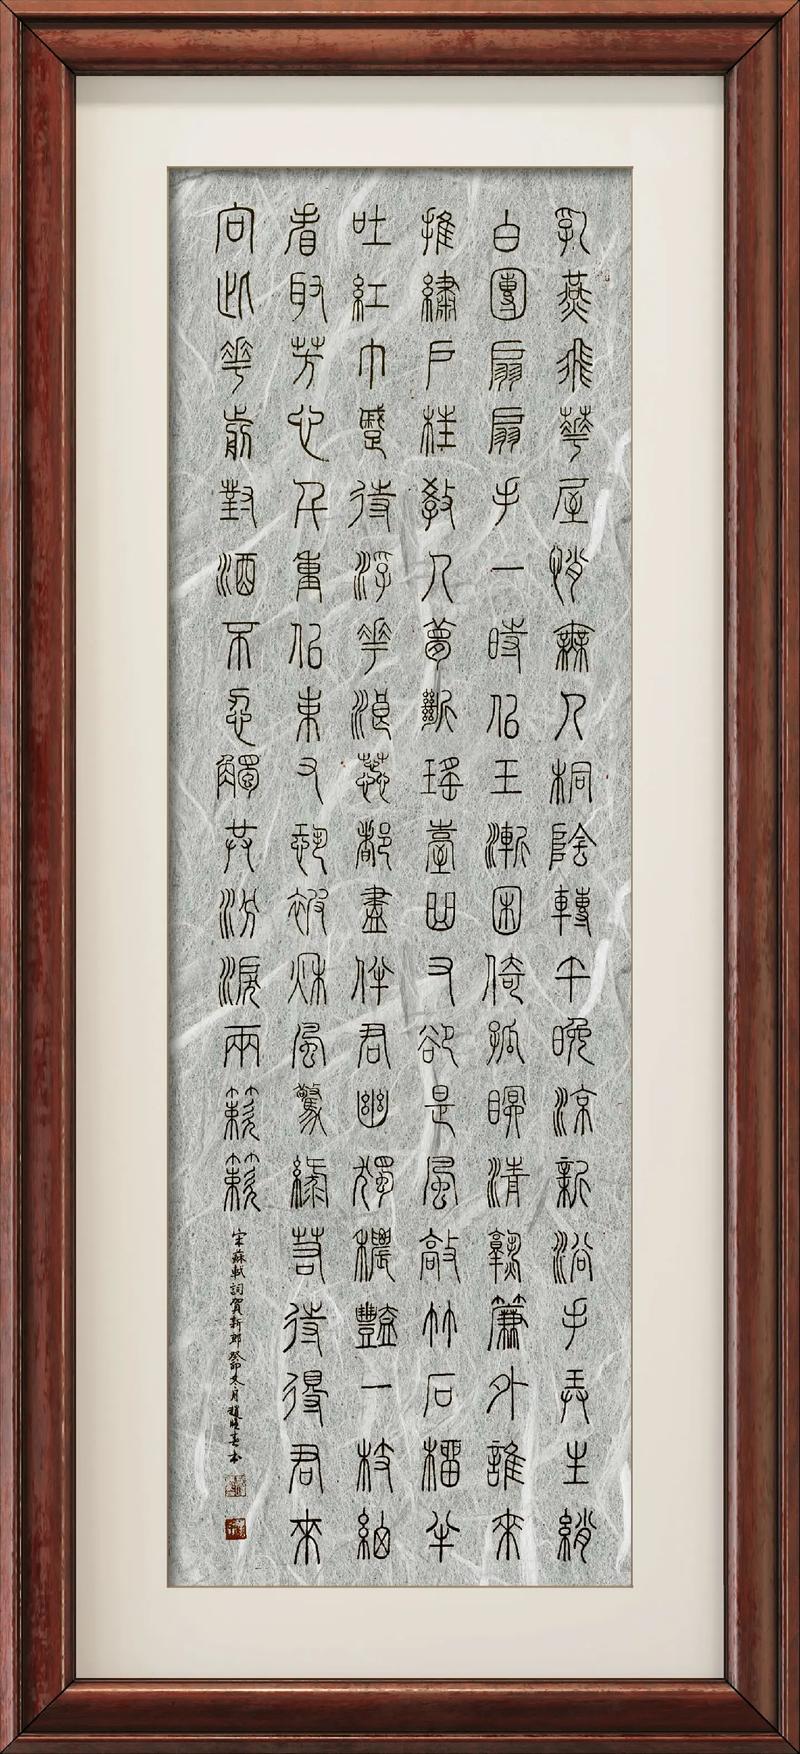 乳燕飛華屋悄無人桐陰轉午晚涼新浴手弄生綃
白團扇扇手一時佀玉漸困倚孤眠清熟簾外誰來
推繡戶枉教人夢斷瑤臺曲又卻是風敲竹石榴半
吐紅巾蹙待浮花浪蕊都盡伴君幽獨穠豔一枝細
看取芳心千重佀束又恐被秋風驚綠若待得君來
向此花前對酒不忍觸共粉淚兩簌簌
宋蘇軾詞賀新郎癸卯冬月趙